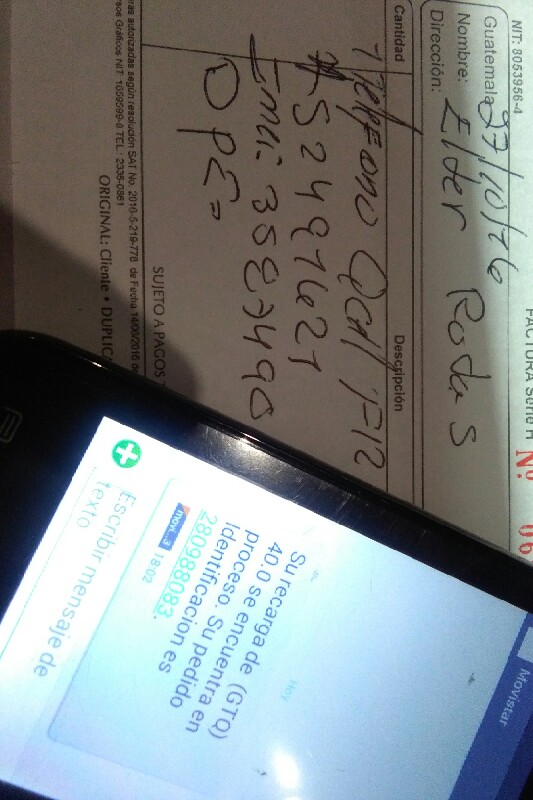 NIT: 8053956-4
FACTURA Serie
Nº 06
Guatemala 27/10/16
Nombre: Elder Rodas
Dirección:
Cantidad Descripción
1 Telefono
52497621
Emei: 3587490
SUJETO A PAGOS
autorizadas según resolución SAT No. 2016-5-219-778 de Fecha
Gráficos NIT: 1659599-0 TEL.: 2336-0861
ORIGINAL: Cliente •
Movistar
Hoy
Su recarga de (GTQ)
40.0 se encuentra en
proceso. Su pedido
Identificacion es
280988083.
movi..3 18:02
Escribir mensaje de
texto